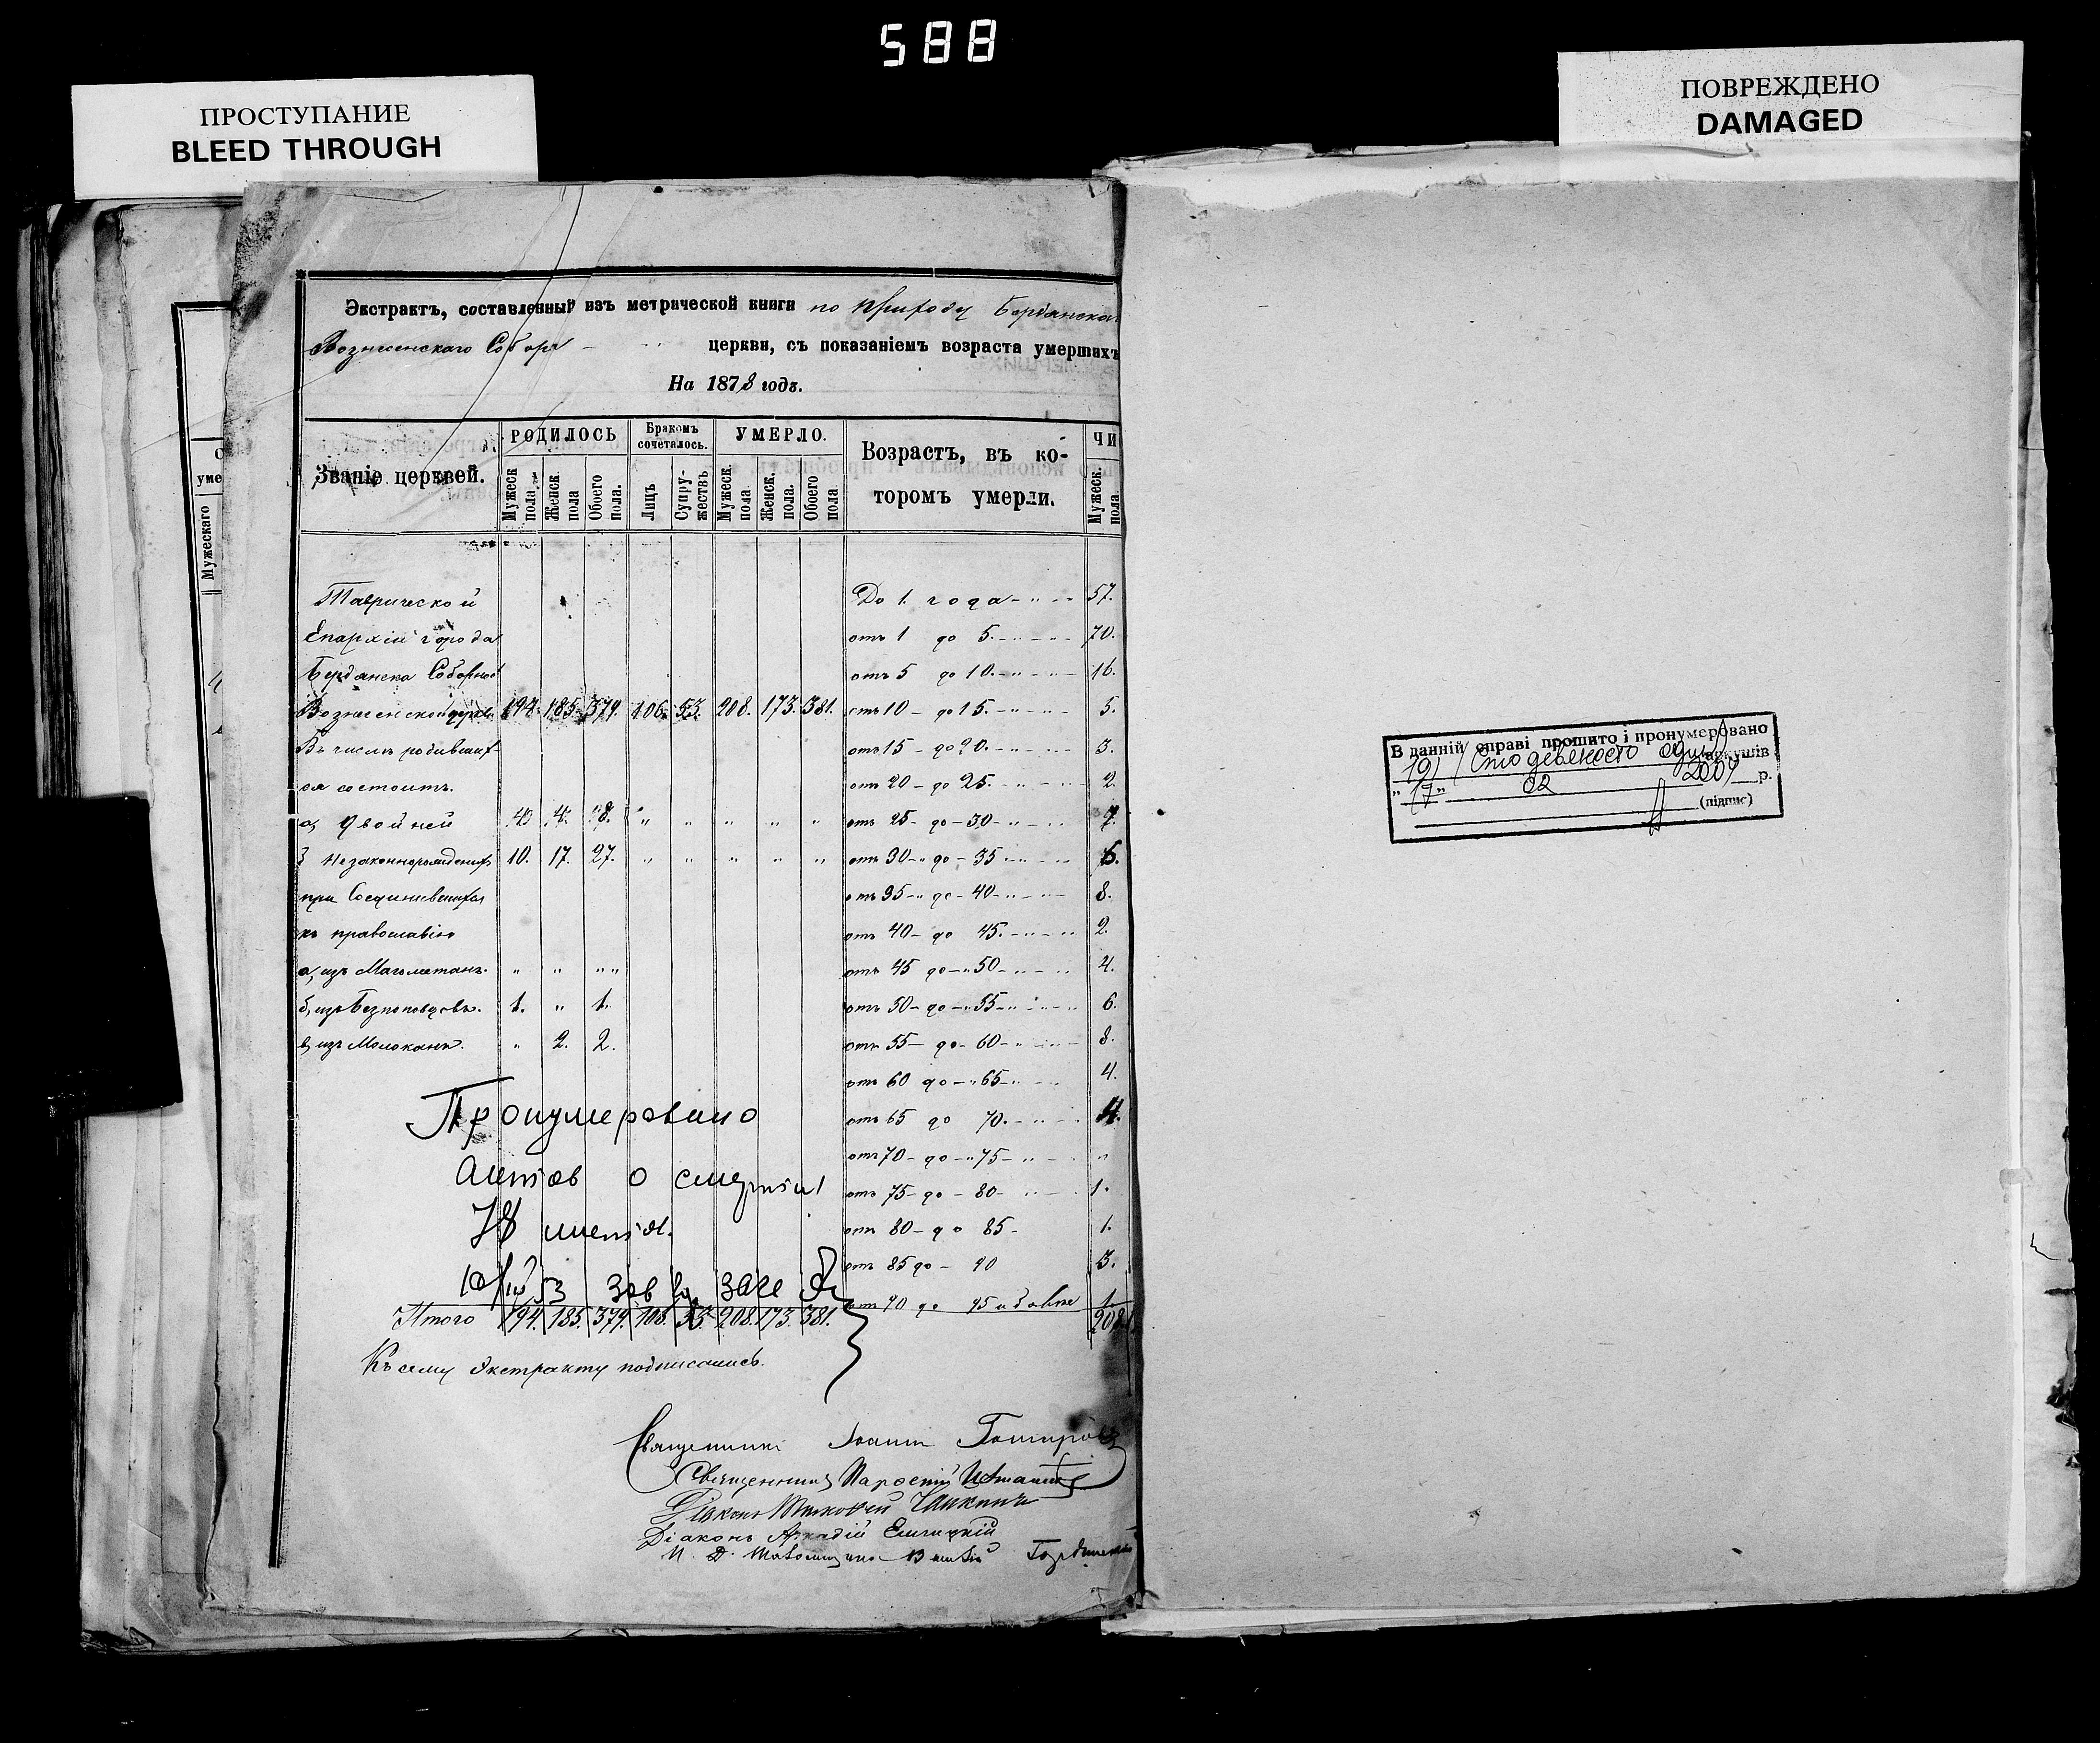 588
ПРОСТУПАНИЕ
BLEED THROUGH
ПОВРЕЖДЕНО
DAMAGED
уме
Мужескаго
Экстрактъ, составленный изъ метрической книги по приходу Бердянска
Вознесенскаго Собора церкви, съ показаніемъ возраста умершихъ
На 1878 годъ.
Званіе церквей.
РОДИЛОСЬ
Бракомъ сочеталось.
УМЕРЛО.
Возрастъ, въ которомъ умерли.
ЧИ
Мужеск. пола.
Женск. пола
Обоего пола.
Лицъ
Супружествъ
Мужеск. пола.
Женск. пола.
Обоего пола
Мужеск. пола
Таврической
До 1 года 57.
Епархіи города
отъ 1 до 5. 70.
Бердянска Соборной
отъ 5 до 10. 16.
Вознесенской церкви 194. 185. 379. 106. 53. 208. 173. 381.
отъ 10 до 15. 5.
Въ числѣ родивших-
отъ 15 до 20. 3.
ся состоитъ.
отъ 20 до 25. 2.
а, двойней 4. 4. 8. " " " " "
отъ 25 до 30 7.
незаконнорожденныхъ 10. 17. 27. " " " " "
отъ 30 до 35 6.
при Соединившихся
отъ 35 до 40 8.
къ православію
отъ 40 до 45. 2.
а, изъ Магометанъ. " " " "
отъ 45 до 50 4.
б, изъ Безпоповцевъ. 1. " 1.
отъ 50 до 55 6.
в, изъ Молоканъ. " 2. 2.
отъ 55 до 60 8.
отъ 60 до 65 4.
Пронумеровано
отъ 65 до 70. 4.
отъ 70 до 75 "
актов о смерти
отъ 75 до 80 1.
78 листов.
отъ 80 до 85 1.
отъ 85 до 90 3.
зав
отъ 90 до 95 и болѣе 1.
Итого 194. 185. 379. 106. 53. 208. 173. 381.
208
Къ сему Экстракту подписались.
Священникъ Іоаннъ
Священникъ
Діаконъ
Діаконъ Аркадій
В данній справі прошито і пронумеровано
191 /Сто девяносто один/ аркушів
"17" 02 2009 р.
(підпис)